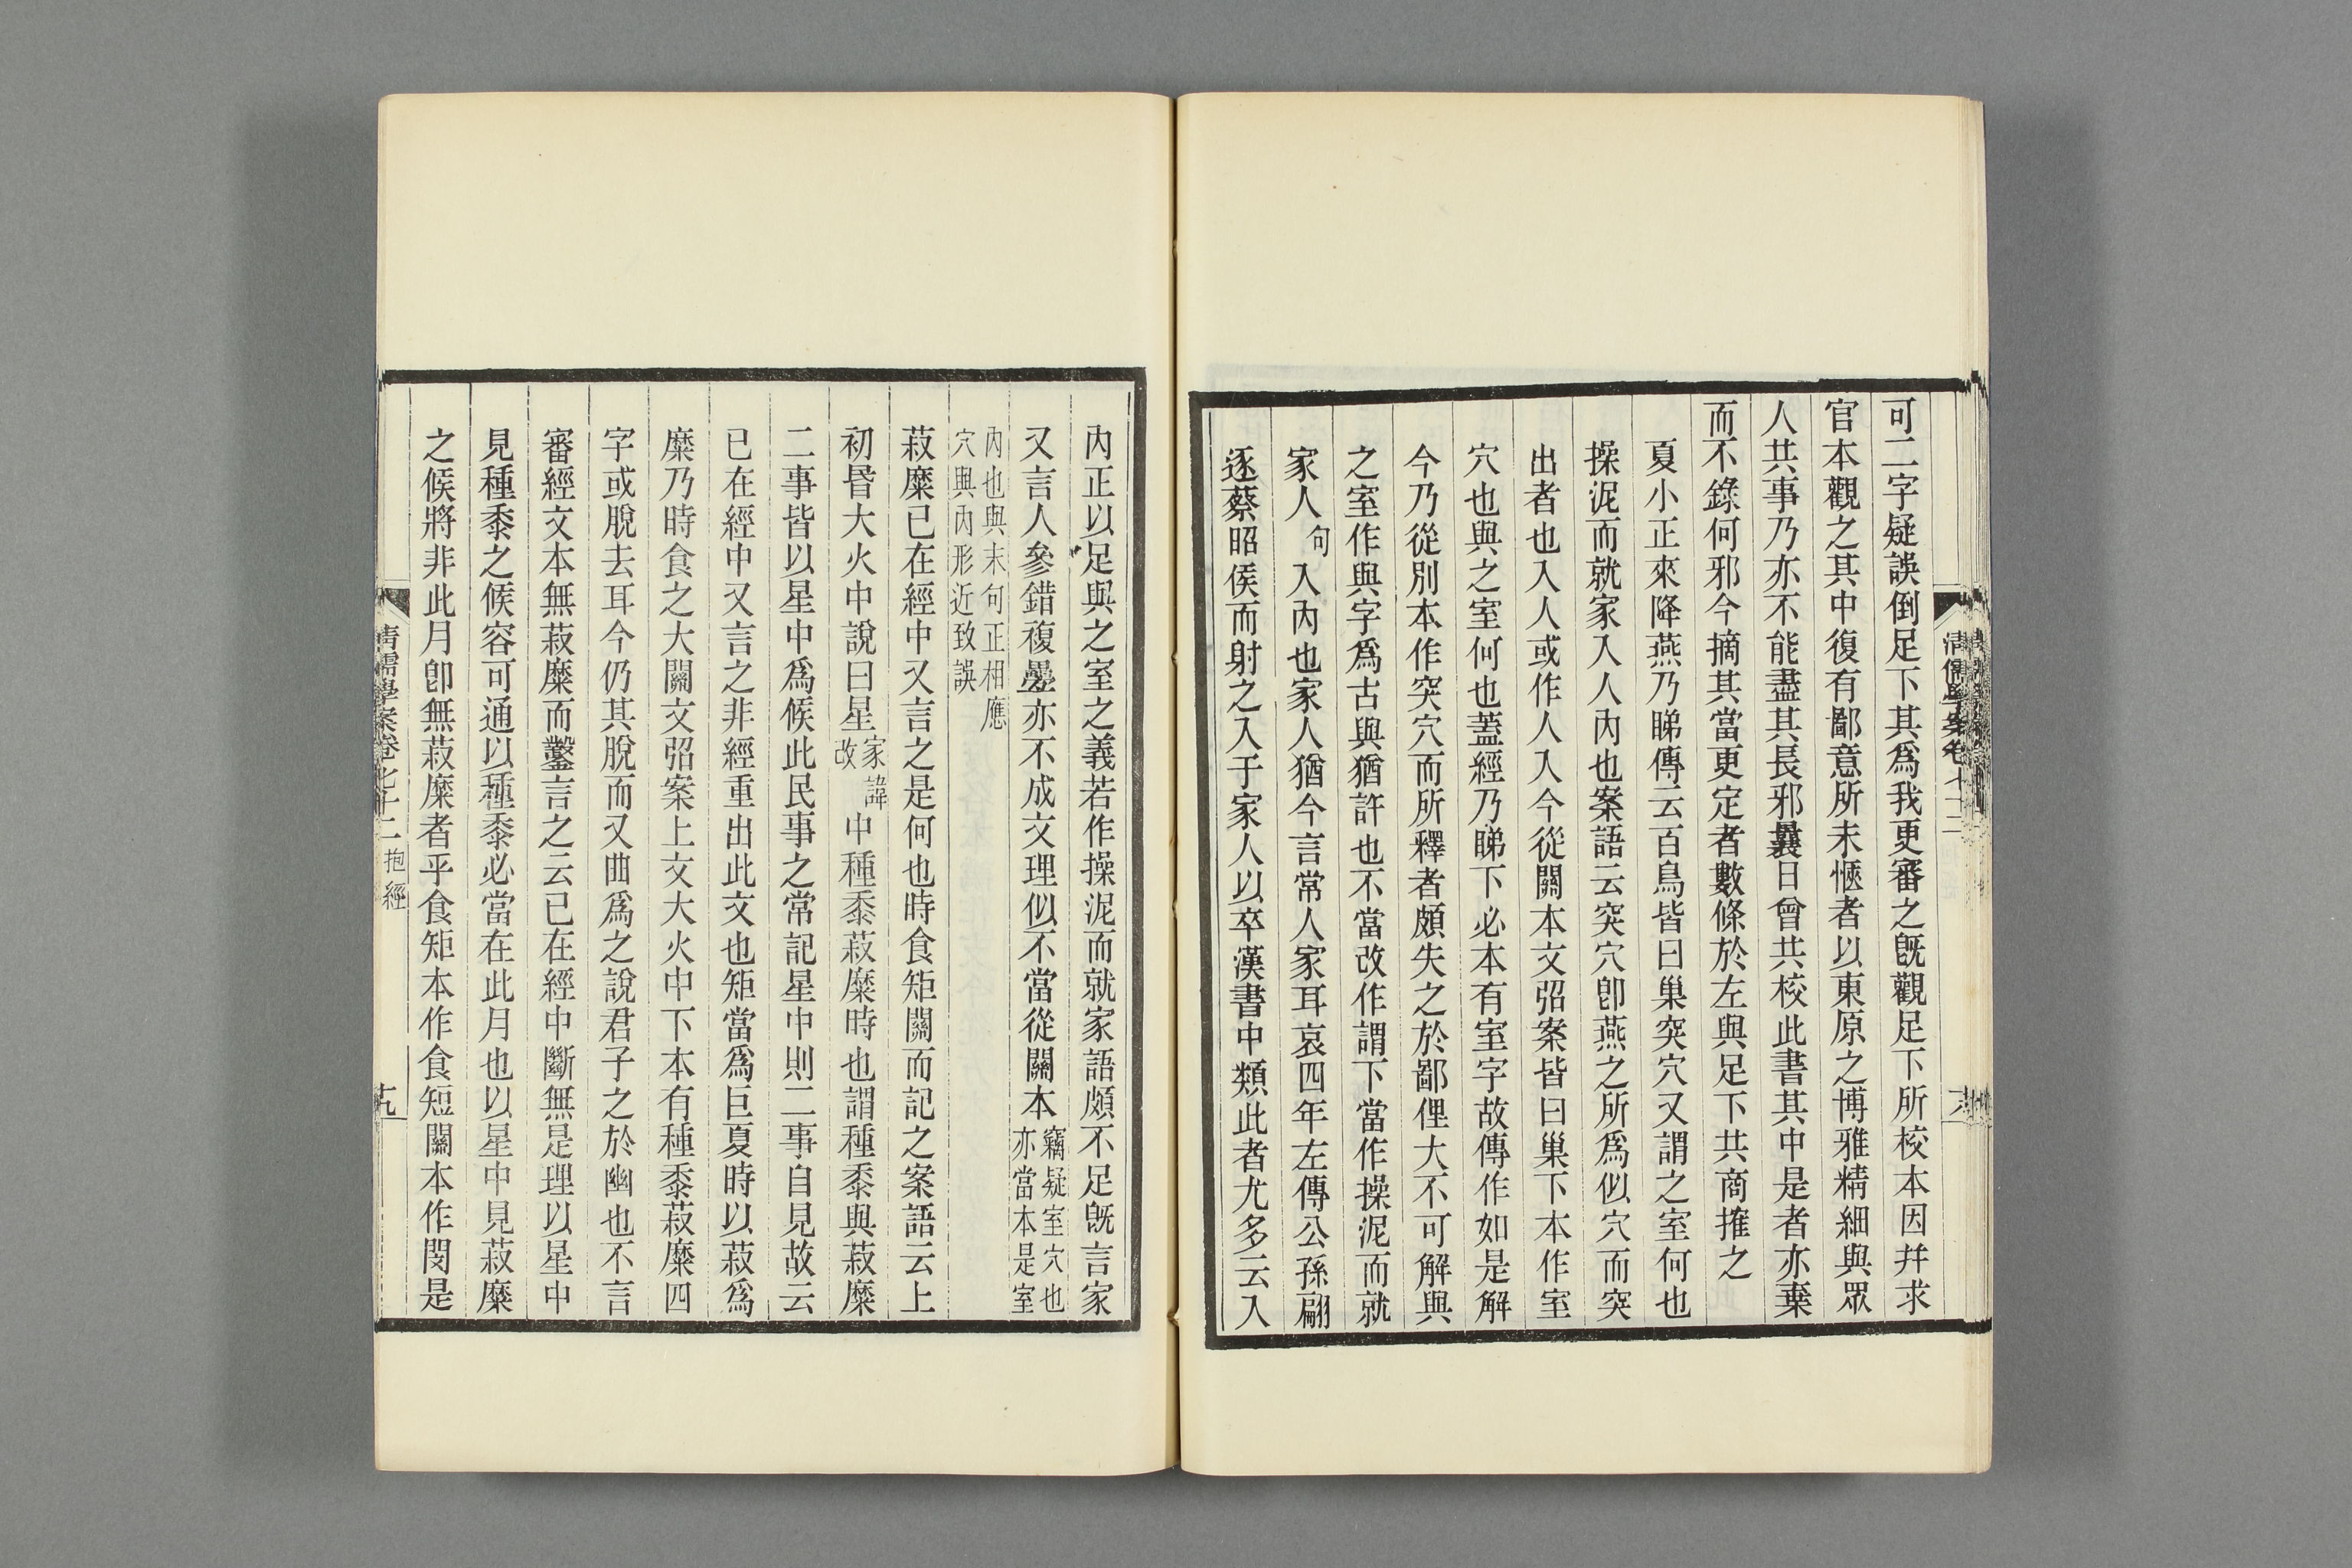 可二字疑誤倒足下其爲我更審之旣觀足下所校本因幷求
官本觀之其中復有鄙意所未愜者以東原之博雅精細與眾
人共事乃亦不能盡其長邪曩日曾共校此書其中是者亦棄
而不錄何邪今摘其當更定者數條於左與足下共商搉之
夏小正來降燕乃睇傳云百鳥皆曰巢突穴又謂之室何也
操泥而就家入人內也案語云突穴卽燕之所爲似穴而突
出者也入人或作人入今從關本文弨案皆曰巢下本作室
穴也與之室何也蓋經乃睇下必本有室字故傳作如是解
今乃從別本作突穴而所釋者頗失之於鄙俚大不可解與
之室作與字爲古與猶許也不當改作謂下當作操泥而就
家人句入內也家人猶今言常人家耳哀四年左傳公孫翩
逐蔡昭侯而射之入于家人以卒漢書中類此者尤多云入
內正以足與之室之義若作操泥而就家語頗不足旣言家
又言人參錯複疊亦不成文理似不當從關本竊疑室穴也亦當本是室
內也與末句正相應穴與內形近致誤
菽糜已在經中又言之是何也時食矩關而記之案語云上
初昏大火中說曰星家諱改中種黍菽糜時也謂種黍與菽糜
二事皆以星中爲候此民事之常記星中則二事自見故云
已在經中又言之非經重出此文也矩當爲巨夏時以菽爲
糜乃時食之大關文弨案上文大火中下本有種黍菽糜四
字或脫去耳今仍其脫而又曲爲之說君子之於幽也不言
審經文本無菽糜而鑿言之云已在經中斷無是理以星中
見種黍之候容可通以種黍必當在此月也以星中見菽糜
之候將非此月卽無菽糜者乎食矩本作食短關本作閔是
清儒學案卷七十二 抱經
十九